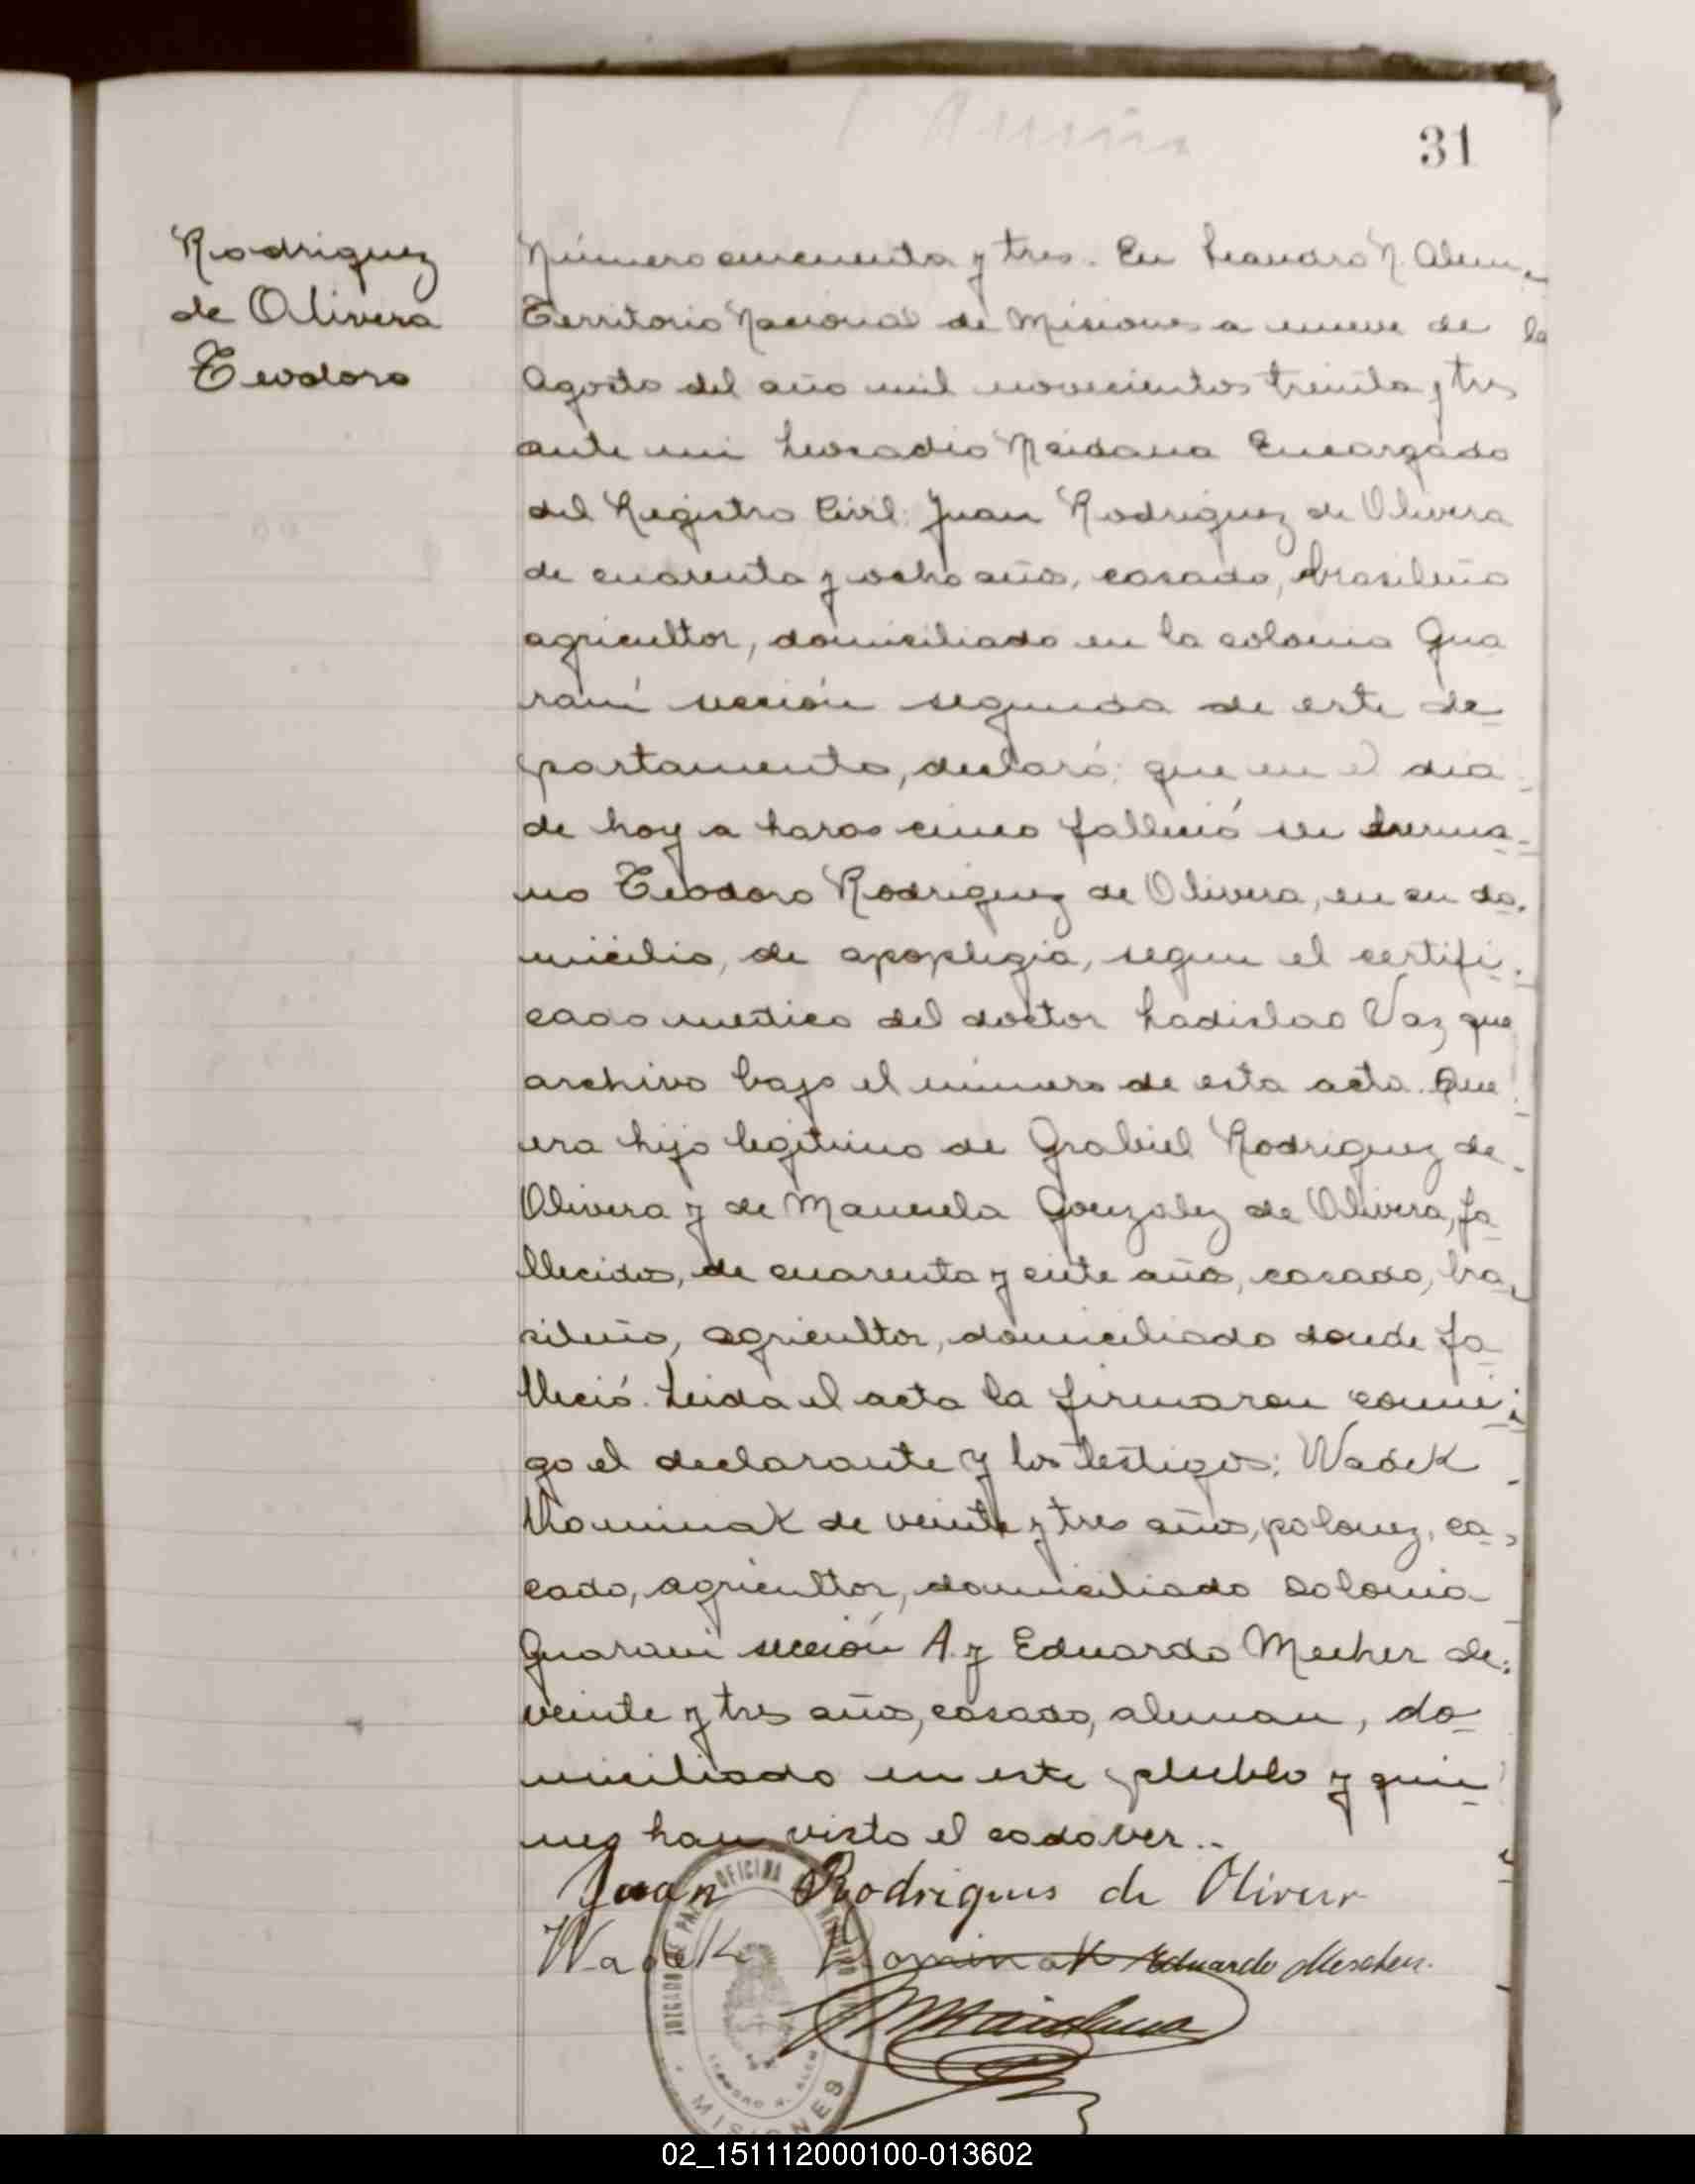 31
Rodriguez
de Olivera
Teodoro
Número cincuenta y tres. En Leandro N. Alem,
Territorio Nacional de Misiones a nueve de
Agosto del año mil novecientos treinta y tres
ante mi Leocadio Maidana Encargado
del Registro Civil: Juan Rodriguez de Olivera
de cuarenta y ocho años, casado, brasileño
agricultor, domiciliado en la colonia Gua
raní sección segunda de este de-
partamento, declaró: que en el dia
de hoy a horas cinco falleció su herma-
no Teodoro Rodriguez de Olivera, en su do-
micilio, de apoplegia, segun el certifi-
cado medico del doctor Ladislao Vaz que
archivo bajo el número de esta acta. Que
era hijo legitimo de Grabiel Rodriguez de
Olivera y de Manuela Gonzalez de Olivera, fa-
llecidos, de cuarenta y siete años, casado, bra
sileño, agricultor, domiciliado donde fa-
lleció. Leida el acta la firmaron conmi-
go el declarante y los testigos: Wadek
Kominak de veinte y tres años, polonez, ca-
sado, agricultor, domiciliado Colonia
Guarani sección A. y Eduardo Mecher de
veinte y tres años, casado, aleman, do-
miciliado en este pueblo y quie-
nes han visto el cadaver..-
Juan Rodrigues de Oliveir
Wadek Kominak Eduardo Meschen.
JUZGADO DE PAZ OFICINA REGISTRO
LEANDRO N. ALEM
MISIONES
02_151112000100-013602